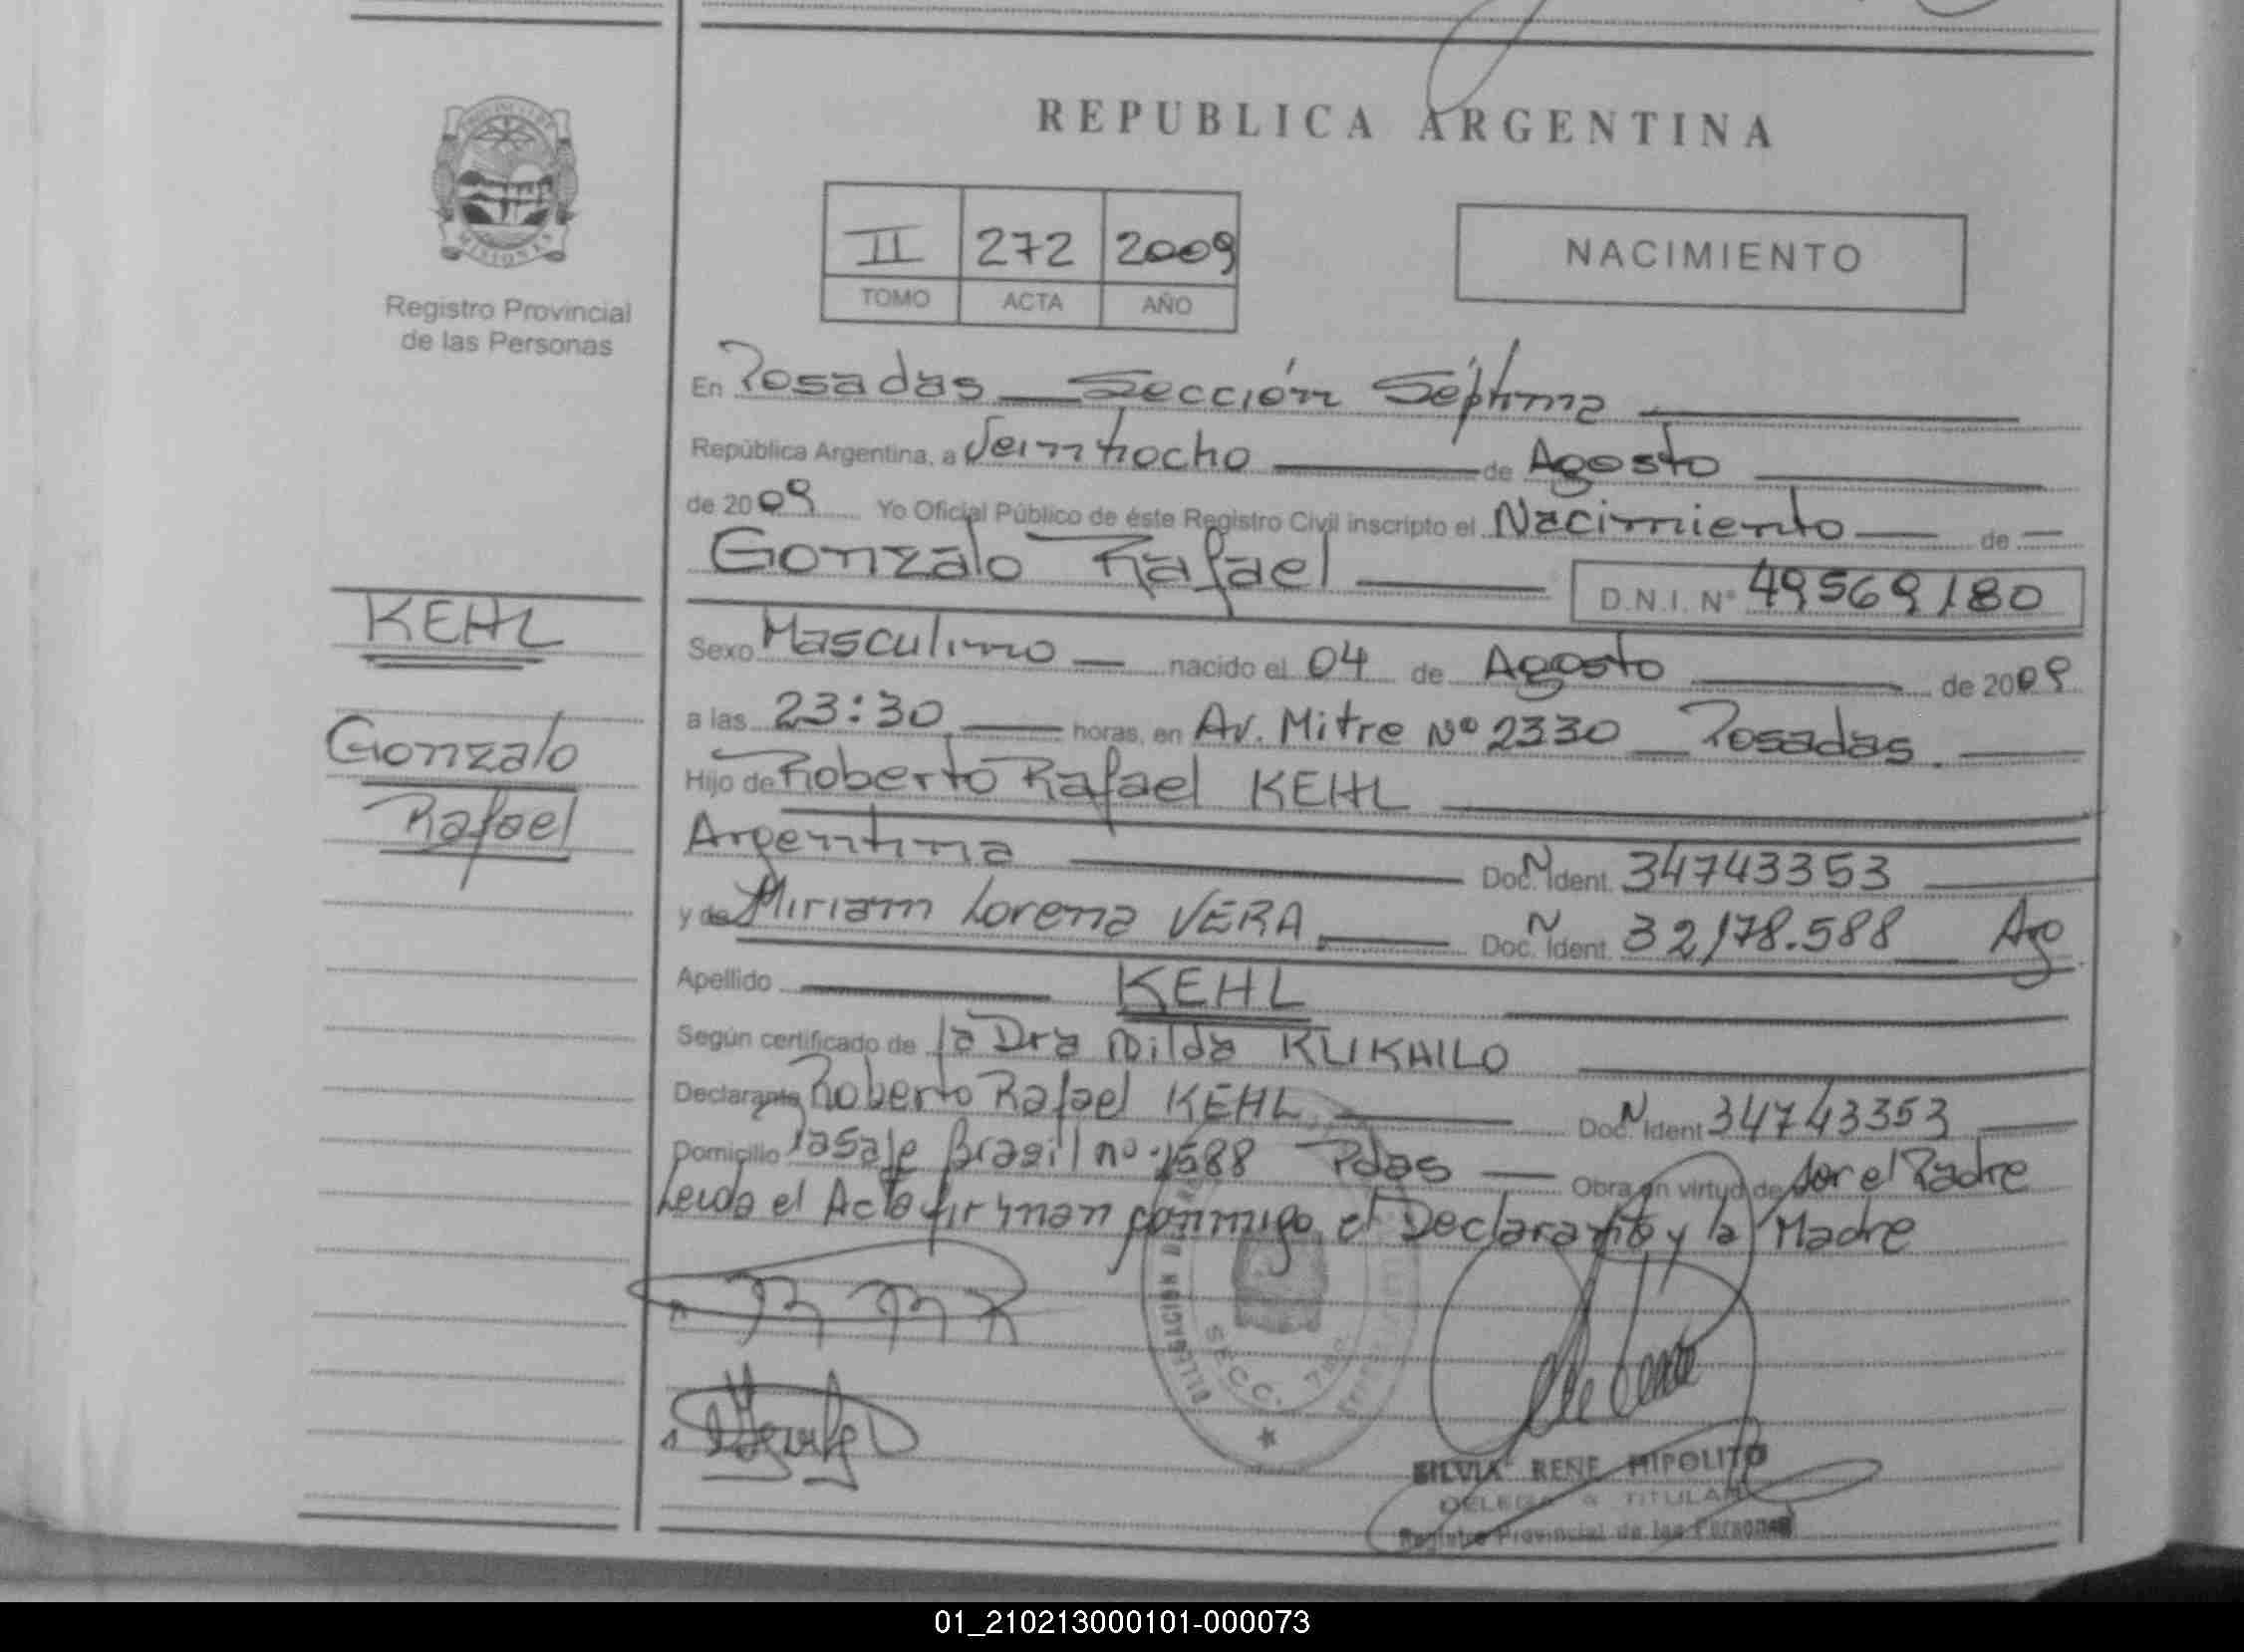 REPUBLICA ARGENTINA
PROVINCIA DE MISIONES
Registro Provincial
de las Personas
II 272 2009
TOMO ACTA AÑO
NACIMIENTO
En Posadas — Sección Séptima
República Argentina, a Veintiocho — de Agosto
de 2009 Yo Oficial Público de éste Registro Civil inscripto el Nacimiento — de —
Gonzalo Rafael — D.N.I. Nº 49569180
KEHL
Gonzalo
Rafael
Sexo Masculino — nacido el 04 de Agosto — de 2009
a las 23:30 — horas, en Av. Mitre Nº 2330 — Posadas. —
Hijo de Roberto Rafael KEHL —
Argentina — Doc. N Ident. 34743353 —
y de Miriam Lorena VERA — Doc. N Ident. 32178.588 — Arg
Apellido — KEHL —
Según certificado de la Dra Nilda KUKAILO —
Declarante Roberto Rafael KEHL — Doc. N Ident 34743353 —
Domicilio Pasaje Brasil nº 1588 Pdas — Obra en virtud de Ser el Padre
Leida el Acta firman conmigo el Declarante y la Madre
SECC. 7
SILVIA RENE HIPOLITO
DELEGADA TITULAR
Registro Provincial de las Personas
01_210213000101-000073